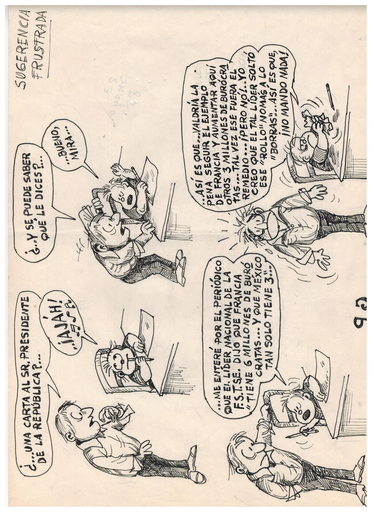 SUGERENCIA
FRUSTRADA
¿...UNA CARTA AL SR. PRESIDENTE
DE LA REPÚBLICA?...
¡AJAH!
¿...Y SE PUEDE SABER
QUE LE DICES?...
...BUENO,
MIRA...
...ME ENTERE POR EL PERIÓDICO
QUE EL LÍDER NACIONAL DE LA
F.S.T.S.E. DIJO QUE FRANCIA
"TIENE 6 MILLONES DE BURÓ
CRATAS... Y QUE MEXICO
TAN SOLO TIENE 3"...
...ASÍ ES QUE...VALDRÍA LA
PENA SEGUIR EL EJEMPLO
DE FRANCIA Y AUMENTAR AQUI
OTROS 3 MILLONES DE BUROCRA
TAS...TAL VEZ ESE FUERA EL
REMEDIO... ¡PERO NO!..YO
CREO QUE EL TAL LÍDER SOLTÓ
ESE "ROLLO" NOMÁS A LO
"BORRAS"...ASÍ ES QUE,
¡NO MANDO NADA!